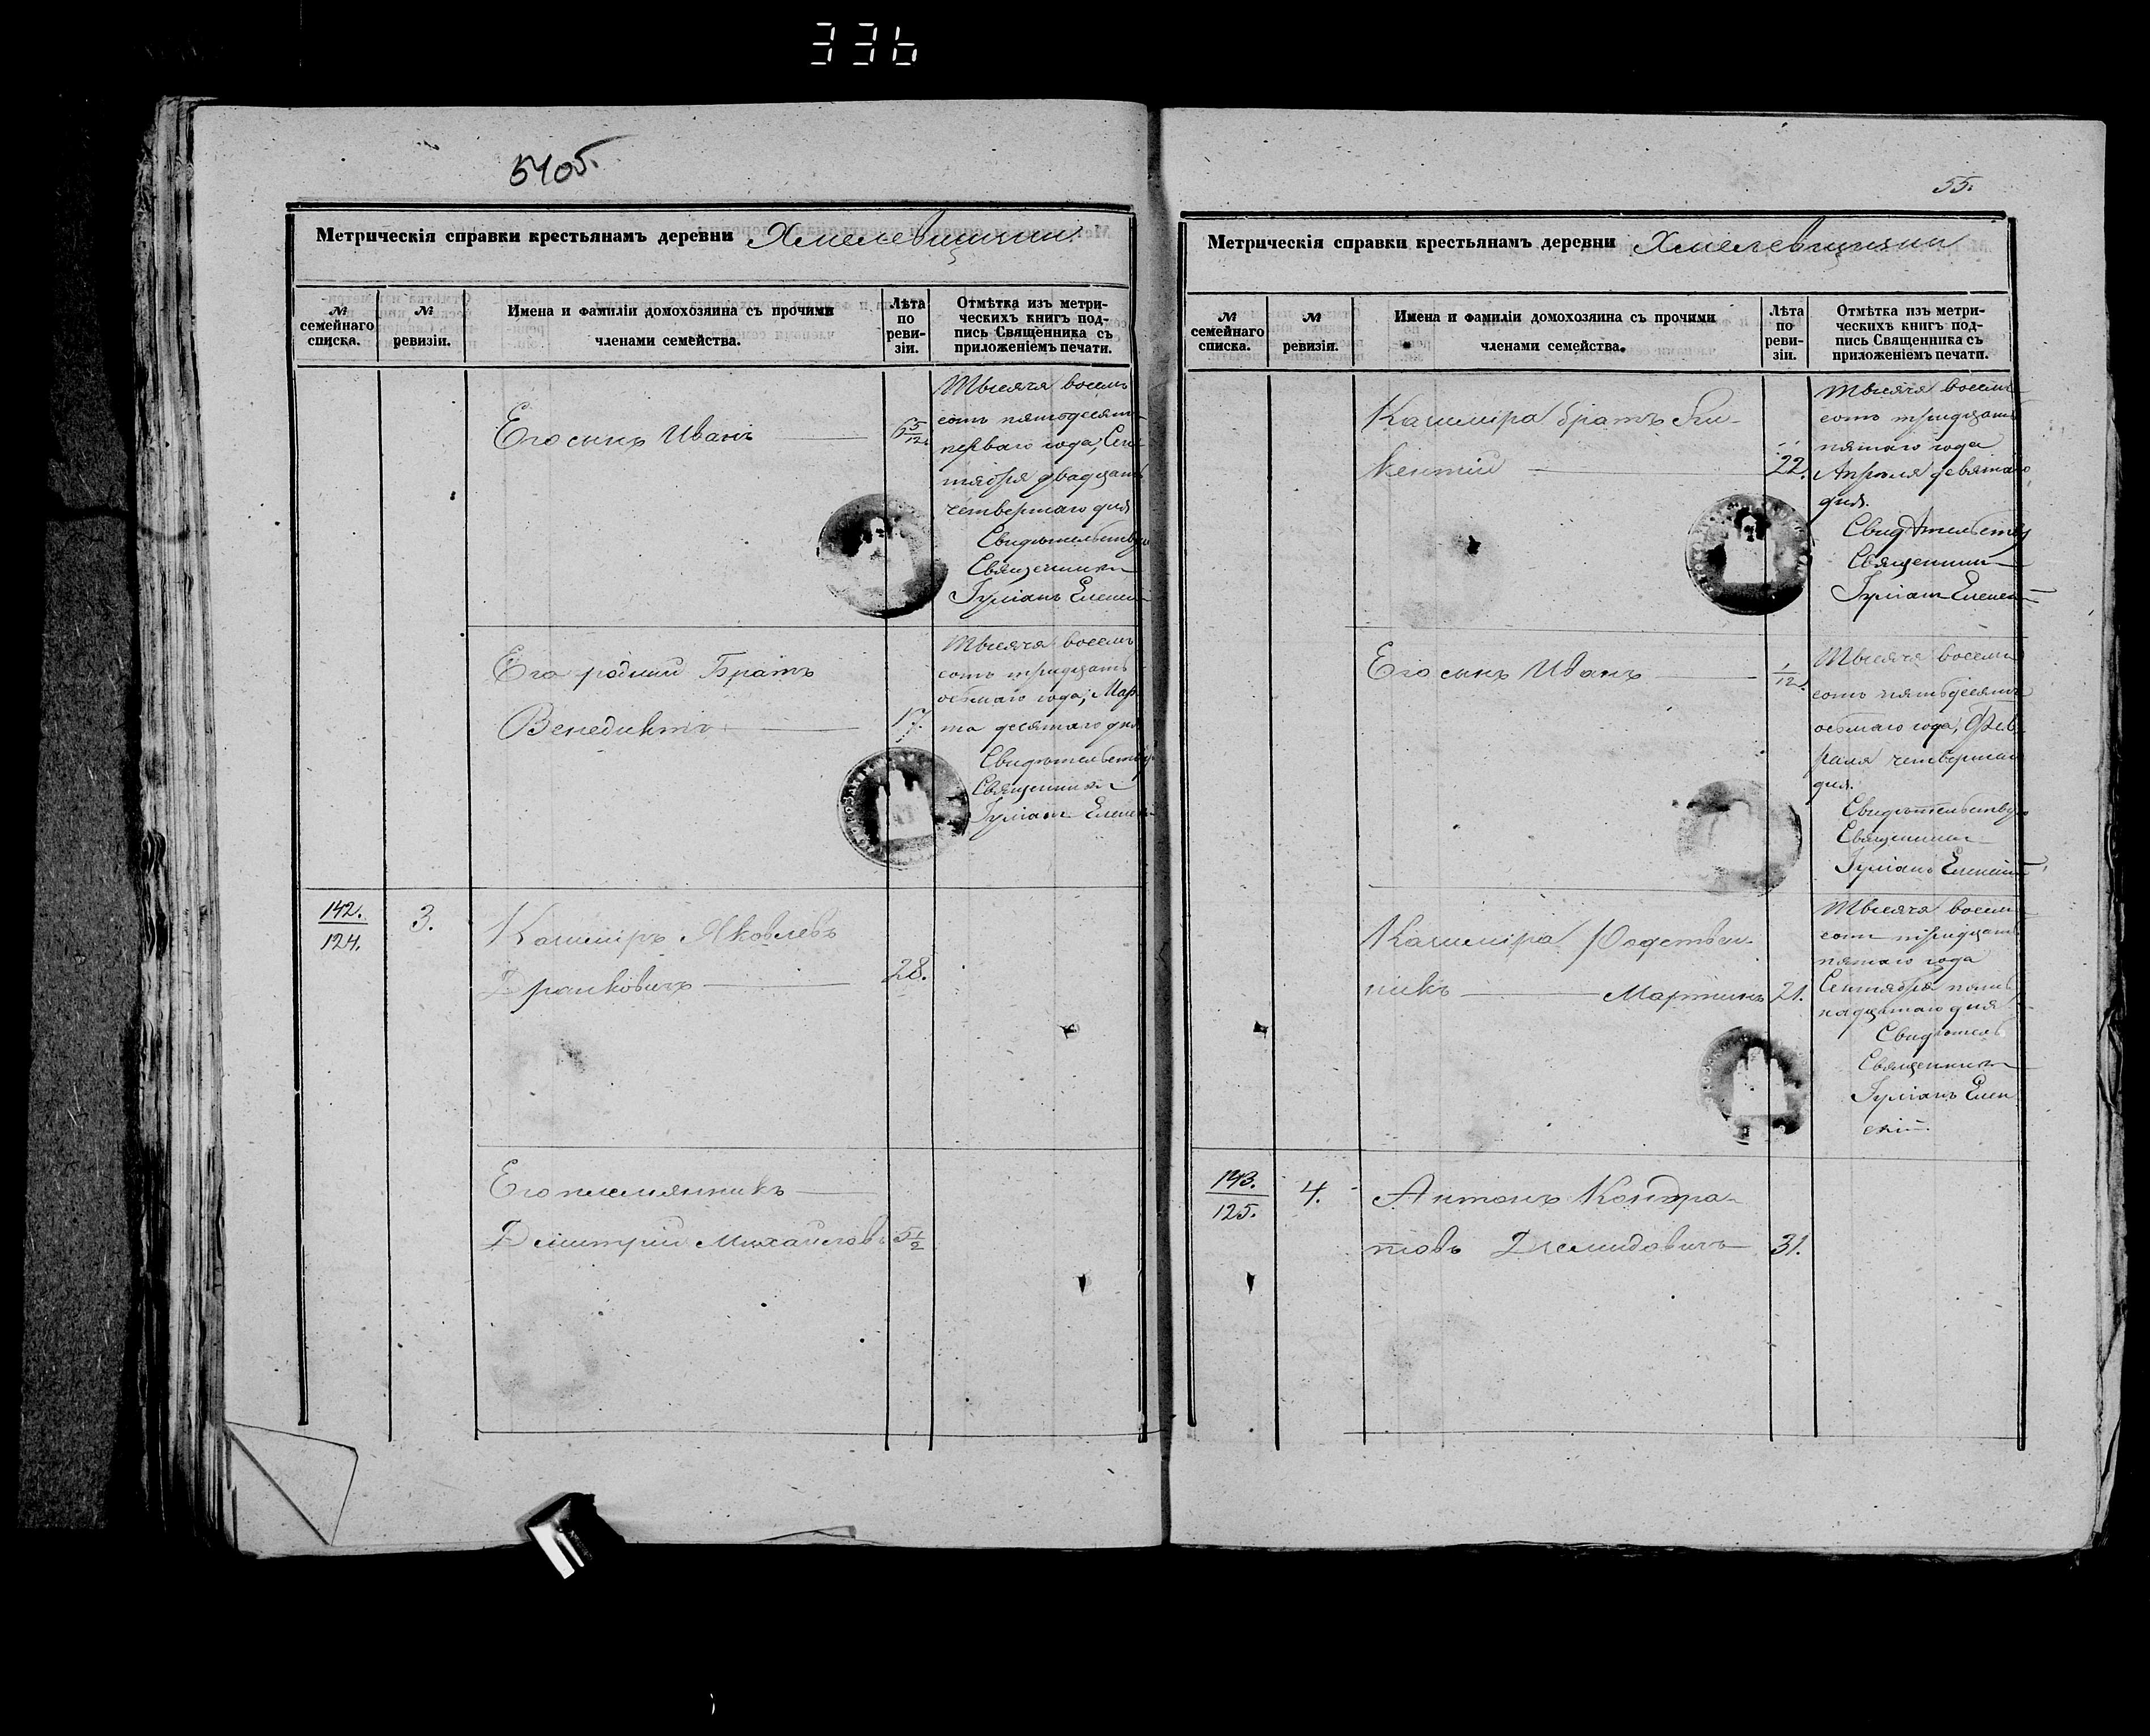 336
54об.
Метрическія справки крестьянамъ деревни Хмелевщизни
№ семейнаго списка.
№ ревизіи.
Имена и фамиліи домохозяина съ прочими
членами семейства.
Лѣта по ревизіи.
Отмѣтка изъ метри-
ческихъ книгъ под-
пись Священника съ
приложеніемъ печати.
Его сынъ Иванъ
6 5/12
Тысяча восемь
сотъ пятьдесятъ
перваго года, Сен
тября двадцать
четвертаго дня
Свидѣтельствую
Священникъ
Іуліанъ
Его родный Братъ
Венедиктъ
17.
Тысяча восемь
сотъ тридцать
осьмаго года, Мар
та десятаго дня
Свидѣтельству
Священникъ
Іуліанъ
142.
124.
3.
Казиміръ Яковлевъ
Дранковичъ
28.
Его племянникъ
Дмитрій Михайловъ
5 1/2
55.
Метрическія справки крестьянамъ деревни Хмелевщизни
№ семейнаго списка.
№ ревизіи.
Имена и фамиліи домохозяина съ прочими
членами семейства.
Лѣта по ревизіи.
Отмѣтка изъ метри-
ческихъ книгъ под-
пись Священника съ
приложеніемъ печати.
Казиміра братъ
кентій
22.
Тысяча восемь
сотъ тридцать
пятаго года
Апрѣля девятаго
дня.
Свидѣтельству
Священникъ
Іуліанъ
Его сынъ Иванъ
1/12.
Тысяча восемь
сотъ пятьдесятъ
осьмаго года, Фев
раля четвертаго
дня.
Свидѣтельствую
Священникъ
Іуліанъ
Казиміра Родствен-
никъ Мартинъ
21.
Тысяча восемь
сотъ тридцать
пятаго года
Сентября пят
надцатаго дня
Свидѣтель
Священникъ
Іуліанъ Елен
скій
143.
125.
4.
Антонъ Кондра-
товъ Демидовичъ
31.